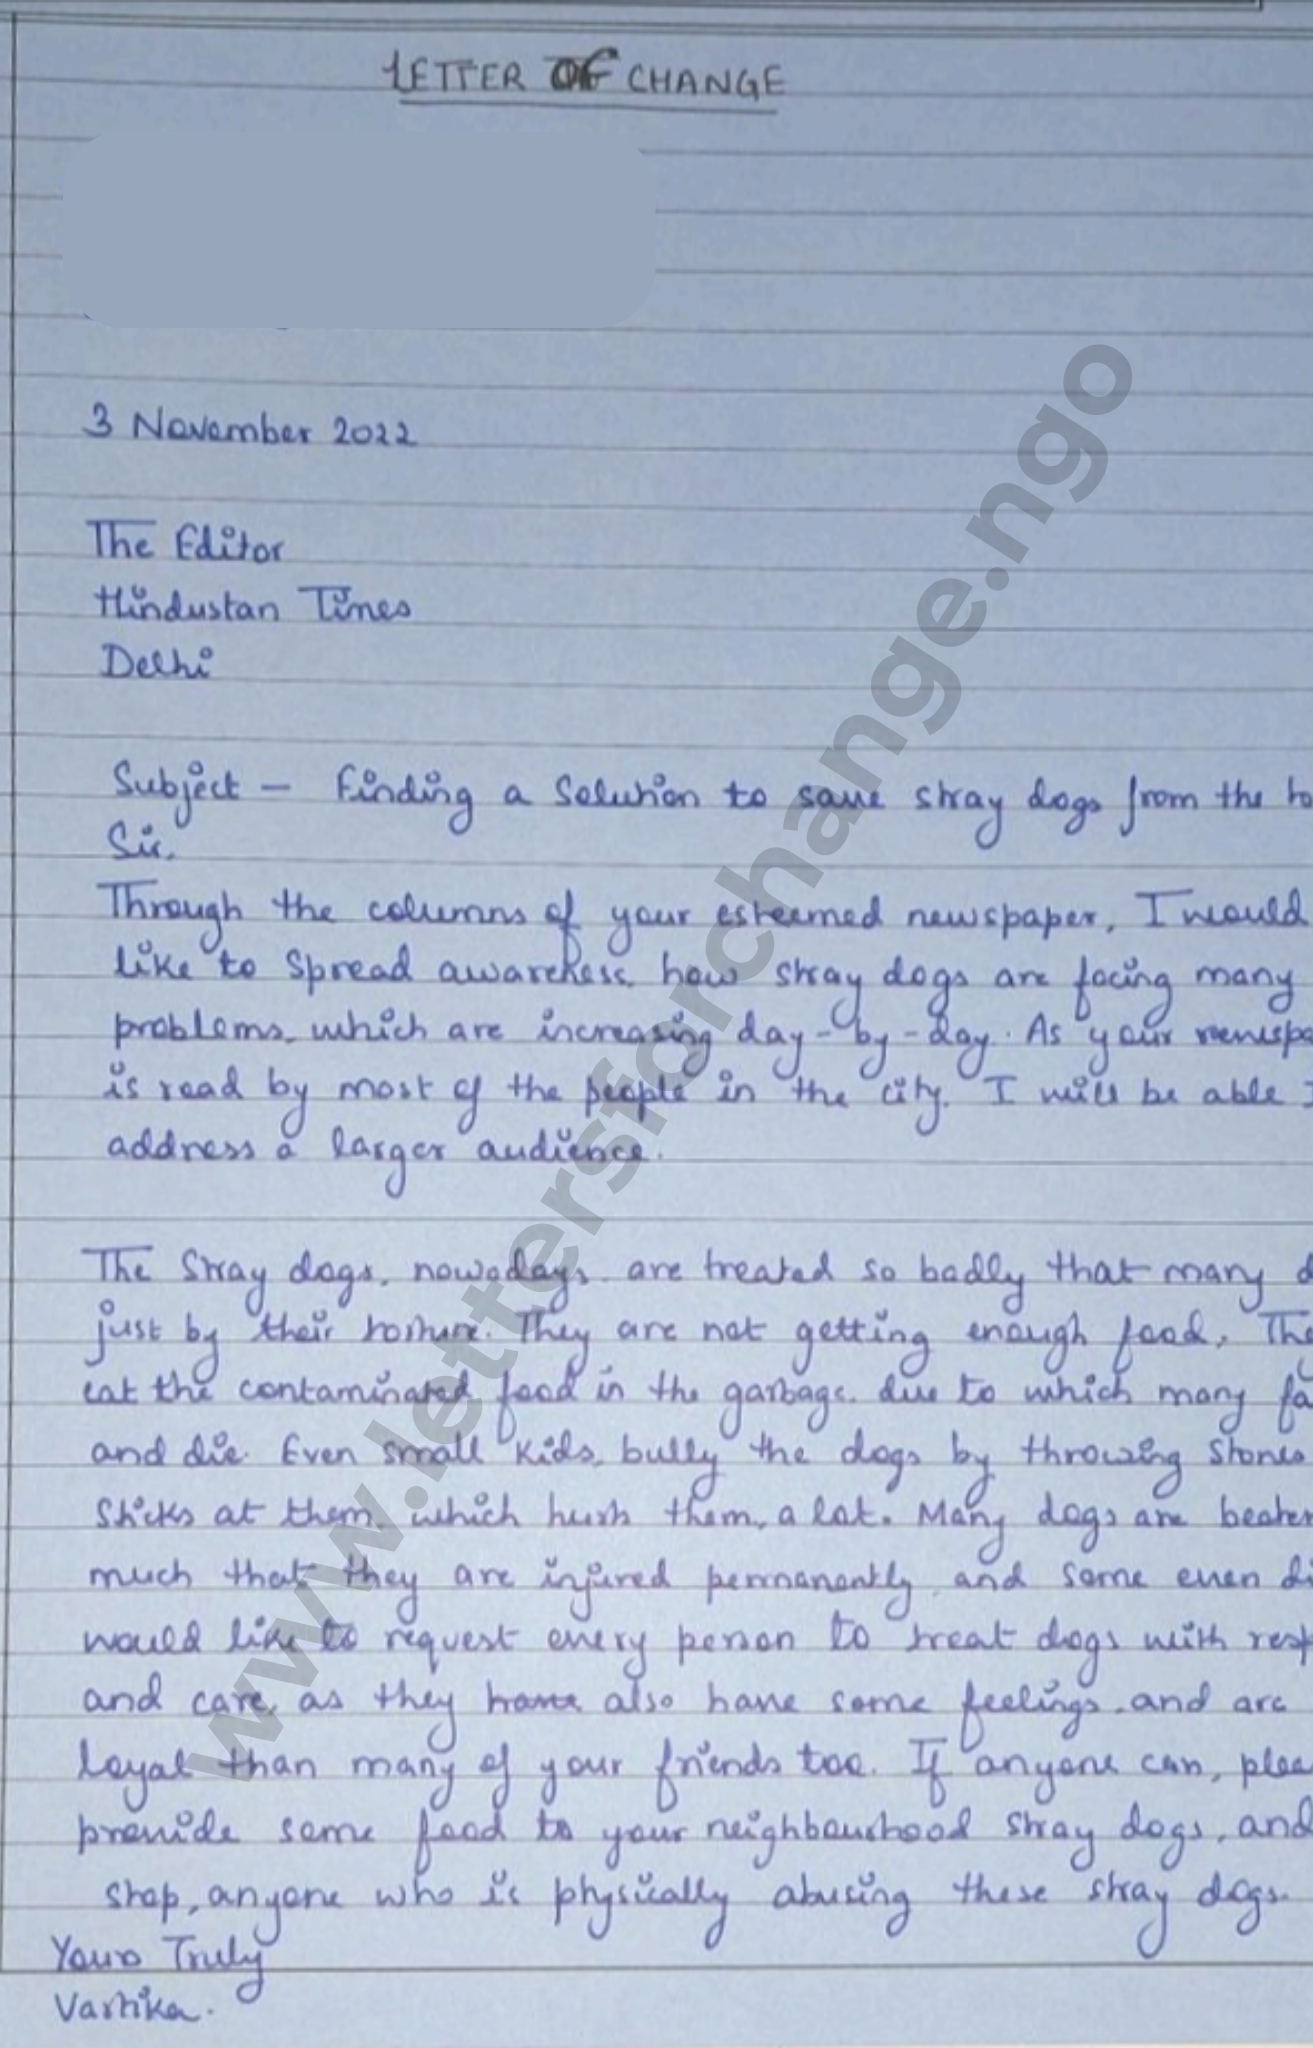 LETTER OF CHANGE
3 November 2022
The Editor
Hindustan Times
Delhi
Subject - Finding a Solution to save stray dogs from the
Sir,
Through the columns of your esteemed newspaper, I would
like to spread awareness, how stray dogs are facing many
problems, which are increasing day-by-day. As your
is read by most of the people in the city, I will be able
address a larger audience.
The Stray dogs, nowadays, are treated so badly that many
just by their torture. They are not getting enough food.
eat the contaminated food in the garbage, due to which many
and die. Even small kids, bully the dogs by throwing stones
sticks at them, which hurts them, a lot. Many dogs are
much that they are injured permanantly, and some even
would like to request every person to treat dogs with
and care, as they have also have some feelings, and are
loyal than many of your friends too. If anyone can,
provide some food to your neighbourhood stray dogs, and
stop, anyone who is physically abusing these stray dogs.
Yours Truly
Vartika.
www.lettersforchange.ngo